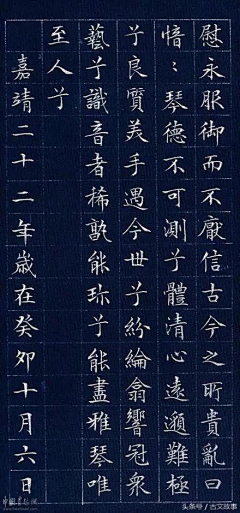 慰永服御而不厭信古今之所貴亂曰
愔〻琴德不可測兮體清心遠邈難極
兮良質美手遇今世兮紛綸翕響冠衆
藝兮識音者稀孰能珎兮能盡雅琴唯
至人兮
嘉靖二十二年歲在癸卯十月六日
头条号 / 古文故事